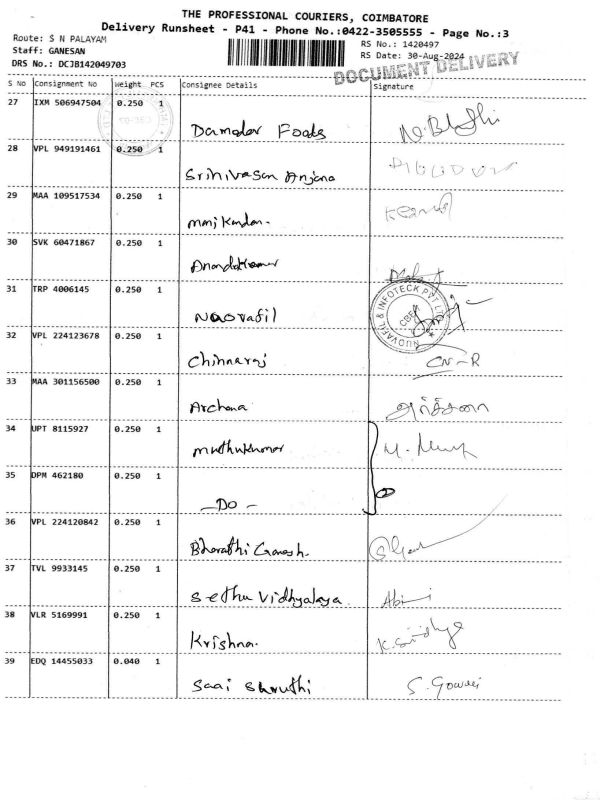 THE PROFESSIONAL COURIERS, COIMBATORE
Delivery Runsheet - P41 - Phone No.:0422-3505555 - Page No.:3
Route: S N PALAYAM
RS No.: 1420497
Staff: GANESAN
RS Date: 30-Aug-2024
DRS No.: DCJB142049703
DOCUMENT DELIVERY
S No Consignment No Weight PCS Consignee Details Signature
27 IXM 506947504 0.250 1
Damodar Foods
28 VPL 949191461 0.250 1
Srinivasan Anjana
29 MAA 109517534 0.250 1
Manikandan.
30 SVK 60471867 0.250 1
Anandakumar
31 TRP 4006145 0.250 1
Nuovafil
NUOVAFIL & INFOTECK PVT LTD
CBE
32 VPL 224123678 0.250 1
Chinnaraj CN-R
33 MAA 301156500 0.250 1
Archana அர்ச்சனா
34 UPT 8115927 0.250 1
Muthukumar
35 DPM 462180 0.250 1
-Do-
36 VPL 224120842 0.250 1
Bharathi Ganesh.
37 TVL 9933145 0.250 1
Sethu Vidhyalaya Abi
38 VLR 5169991 0.250 1
Krishna. K.
39 EDQ 14455033 0.040 1
Saai Shruthi S. Gowri